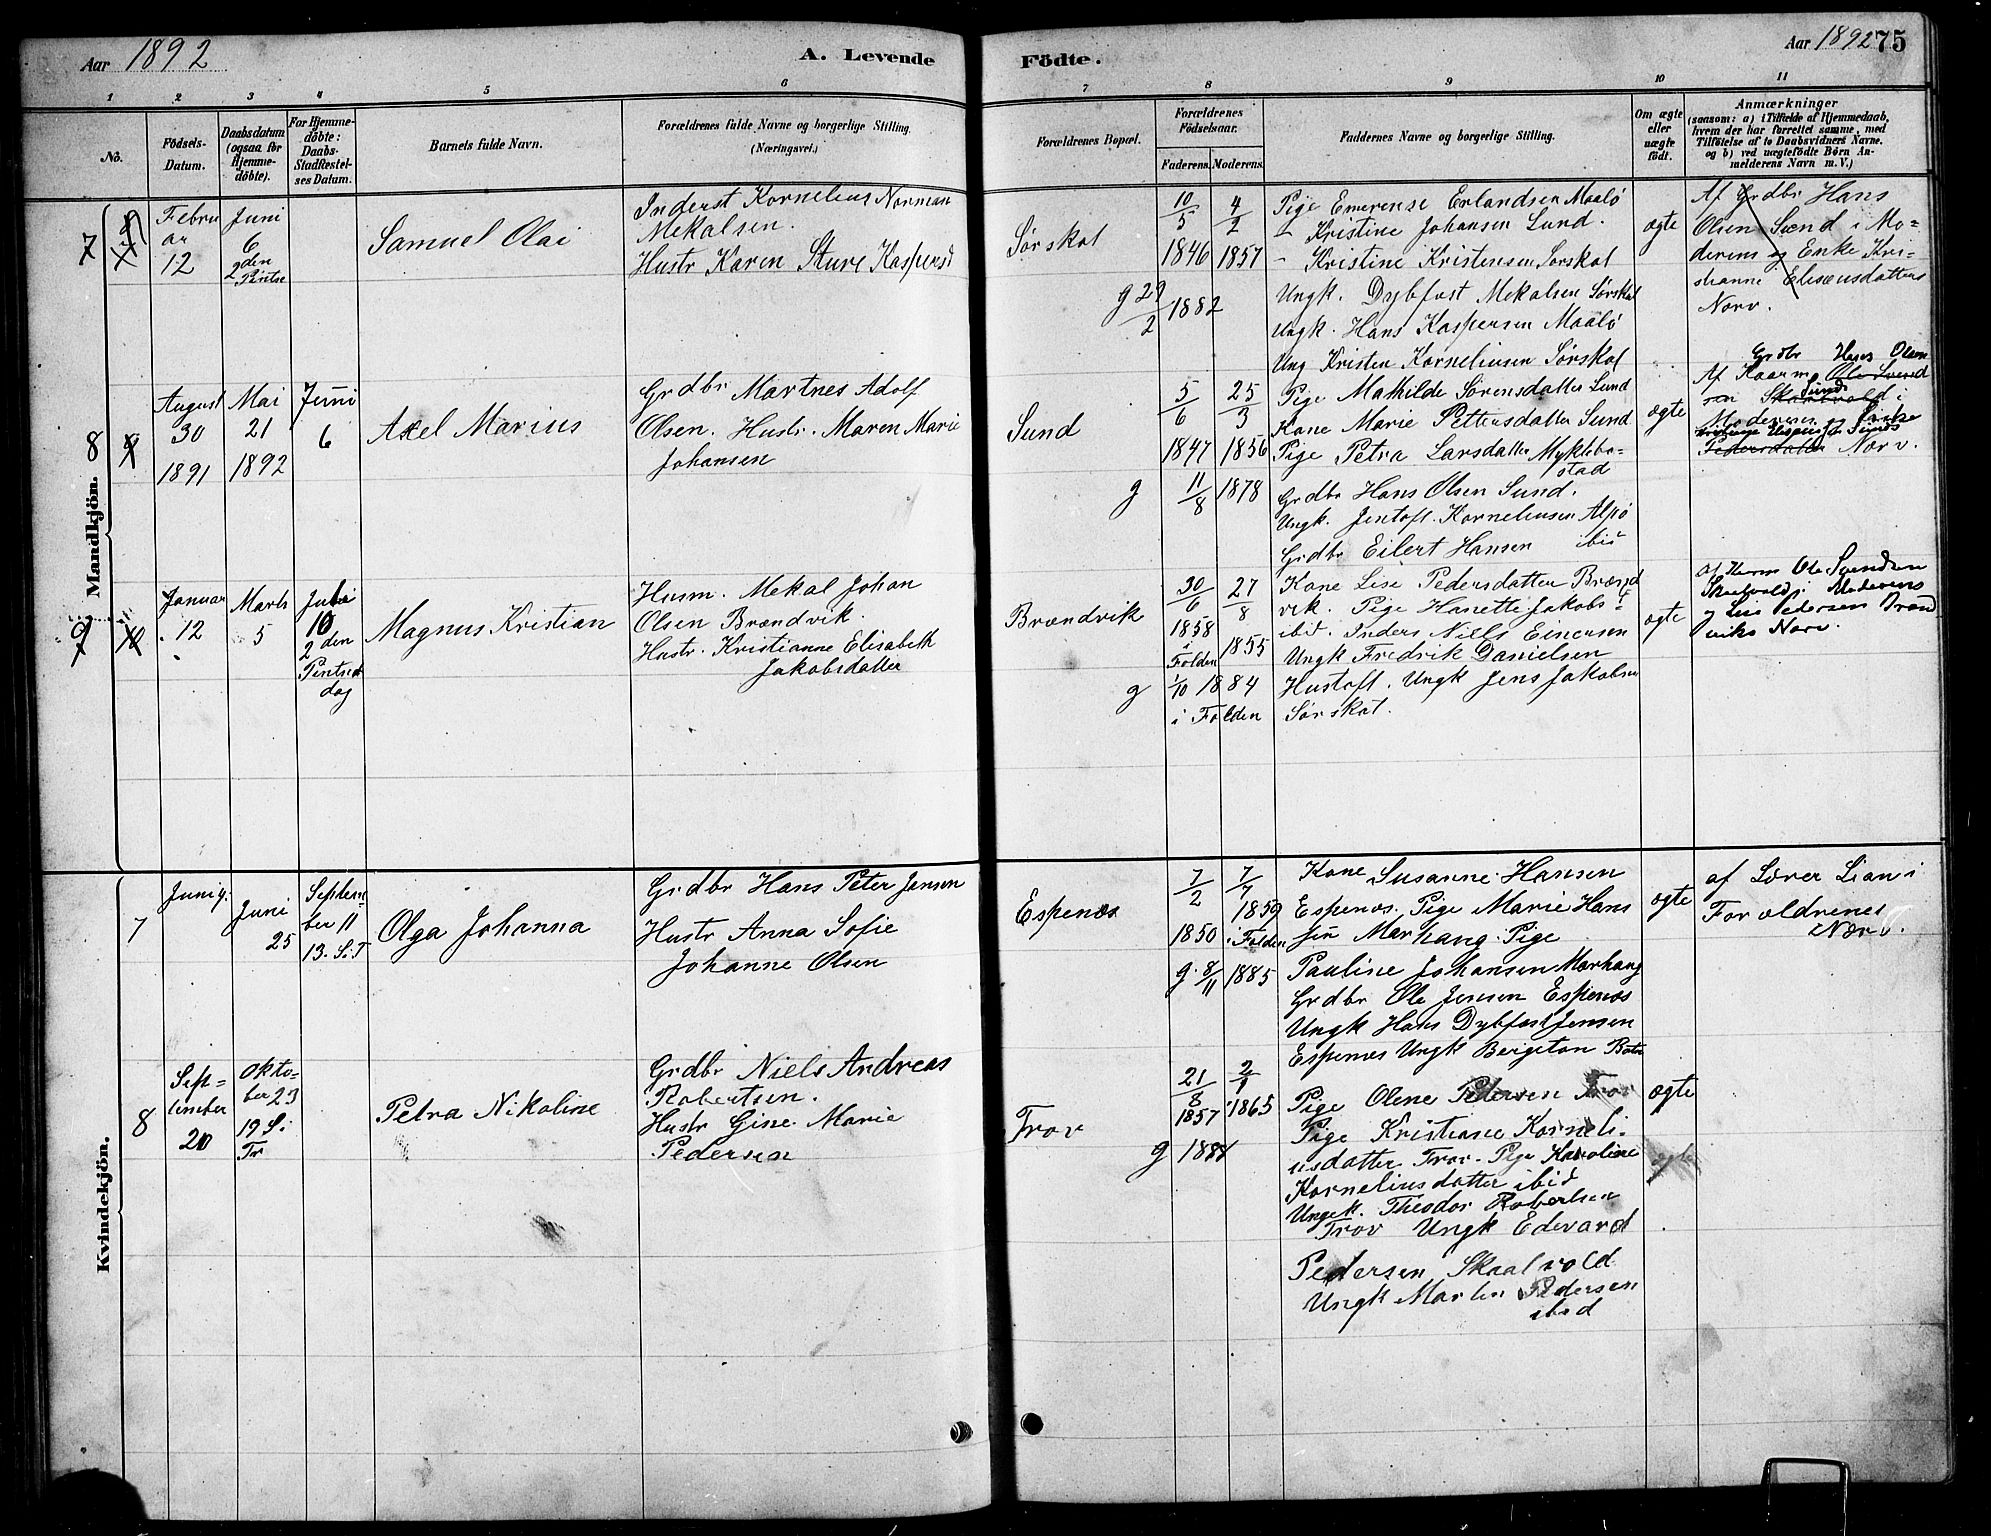 Aar 1892
A. Levende
Födte.
Aar 1892
75
1 2 3 4 5 6 7 8 9 10 11
Nô.
Födsels-
Datum.
Daabsdatum
(ogsaa for
Hjemme-
döbte).
For Hjemme-
döbte:
Daabs-
Stadfæstel-
ses Datum.
Barnets fulde Navn.
Forældrenes fulde Navne og borgerlige Stilling.
(Næringsvei.)
Forældrenes Bopæl.
Forældrenes
Födselsaar.
Faderens.
Moderens.
Faddernes Navne og borgerlige Stilling.
Om ægte
eller
uægte
födt.
Anmærkninger
(saasom: a) i Tilfælde af Hjemmedaab,
hvem der har forrettet samme, med
Tilföielse af to Daabsvidners Navne.
og b) ved uægtefödte Börn An-
melderens Navn m.V.)
Mandkjön.
7
Febru
ar
12
Juni
6
2den
Pintse
Samuel Olai
Inderst Kornelius Norman
Mekalsen.
Hustr Karen Sture Kaspersd
Sørskot
10/5
1846
4/2
1857
g 29/2 1882
Pige Emerense Erlandsen Maalø
– Kristine Johansen Lund.
– Kristine Kristensen Sørskot
Ungk. Dybfest Mekalsen Sørskot
Ungk. Hans Kaspersen Maalø
Ung Kristen Korneliusen Sørskot
ægte
Af Grdbr Hans
Olsen Sund i Mo-
derens og Enke Kri-
stianne Eliseusdatters
Nærv.
8
August
30
1891
Mai
21
1892
Juni
6
Axel Marius
Grdbr Martnes Adolf
Olsen. Hustr. Maren Marie
Johansen
Sund
5/6
1847
25/3
1856
g 11/8 1878
Pige Mathilde Sørensdatter Sund
Kone Marie Pettersdatter Sund
Pige Petra Larsdatter Myklebo-
stad
Grdbr Hans Olsen Sund.
Ungk. Jentoft Korneliusen Alpø
Grdbr Eilert Hansen ibid
ægte
Grdbr Hans Olsen
Sund i
Moderens og Enke
Nærv.
9
Januar
12
Marts
5
Juli
10
2den
Pintse
dag
Magnus Kristian
Husm. Mekal Johan
Olsen Brændvik.
Hustr. Kristianne Elisabeth
Jakobsdatter
Brændvik
30/6
1858
i
Folden
27/8
1855
g 1/10 1884
i Folden
Kone Lise Pedersdatter Brænd
vik. Pige Hanette Jakobs
ibid. Inders Niels Einersen
Ungk Fredrik Danielsen
Hustoft. Ungk Jens Jakobsen
Sørskot.
ægte
Af Husm Ole Svendsen
Skaalvold i Moderens
og Lise Pedersen Brænd
viks Nærv.
Kvindekjön.
7
Juni 9.
Juni
25
Septem-
ber 11
13. S.T
Olga Johanna
Grdbr Hans Peter Jensen
Hustr Anna Sofie
Johanne Olsen
Espenæs
7/2
1850
7/7
1859
i Folden
g. 8/11 1885
Kone Susanne Hansen
Espenæs. Pige Marie Hans
sen Markang. Pige
Pauline Johansen Markang
Grdbr Ole Jensen Espenæs
Ungk Hans Dybfest Jensen
Espenæs Ungk Bergeton
ægte
af Lærer Lian i
Forældrenes
Nærv.
8
Sep-
tember
20
Okto-
ber 23
19 S.
Tr
Petra Nikoline
Grdbr Niels Andreas
Robertsen.
Hustr Gine Marie
Pedersen
Trov
21/8
1857
1865
g 1884
Pige Olene Pedersen Trov
Pige Kristiane Korneli-
usdatter Trov. Pige Karoline
Korneliusdatter ibid
Ungk. Theodor Robertsen
Trov Ungk Edevard
Pedersen Skaalvold
Ungk Martin Pedersen
ibid
ægte
ægte